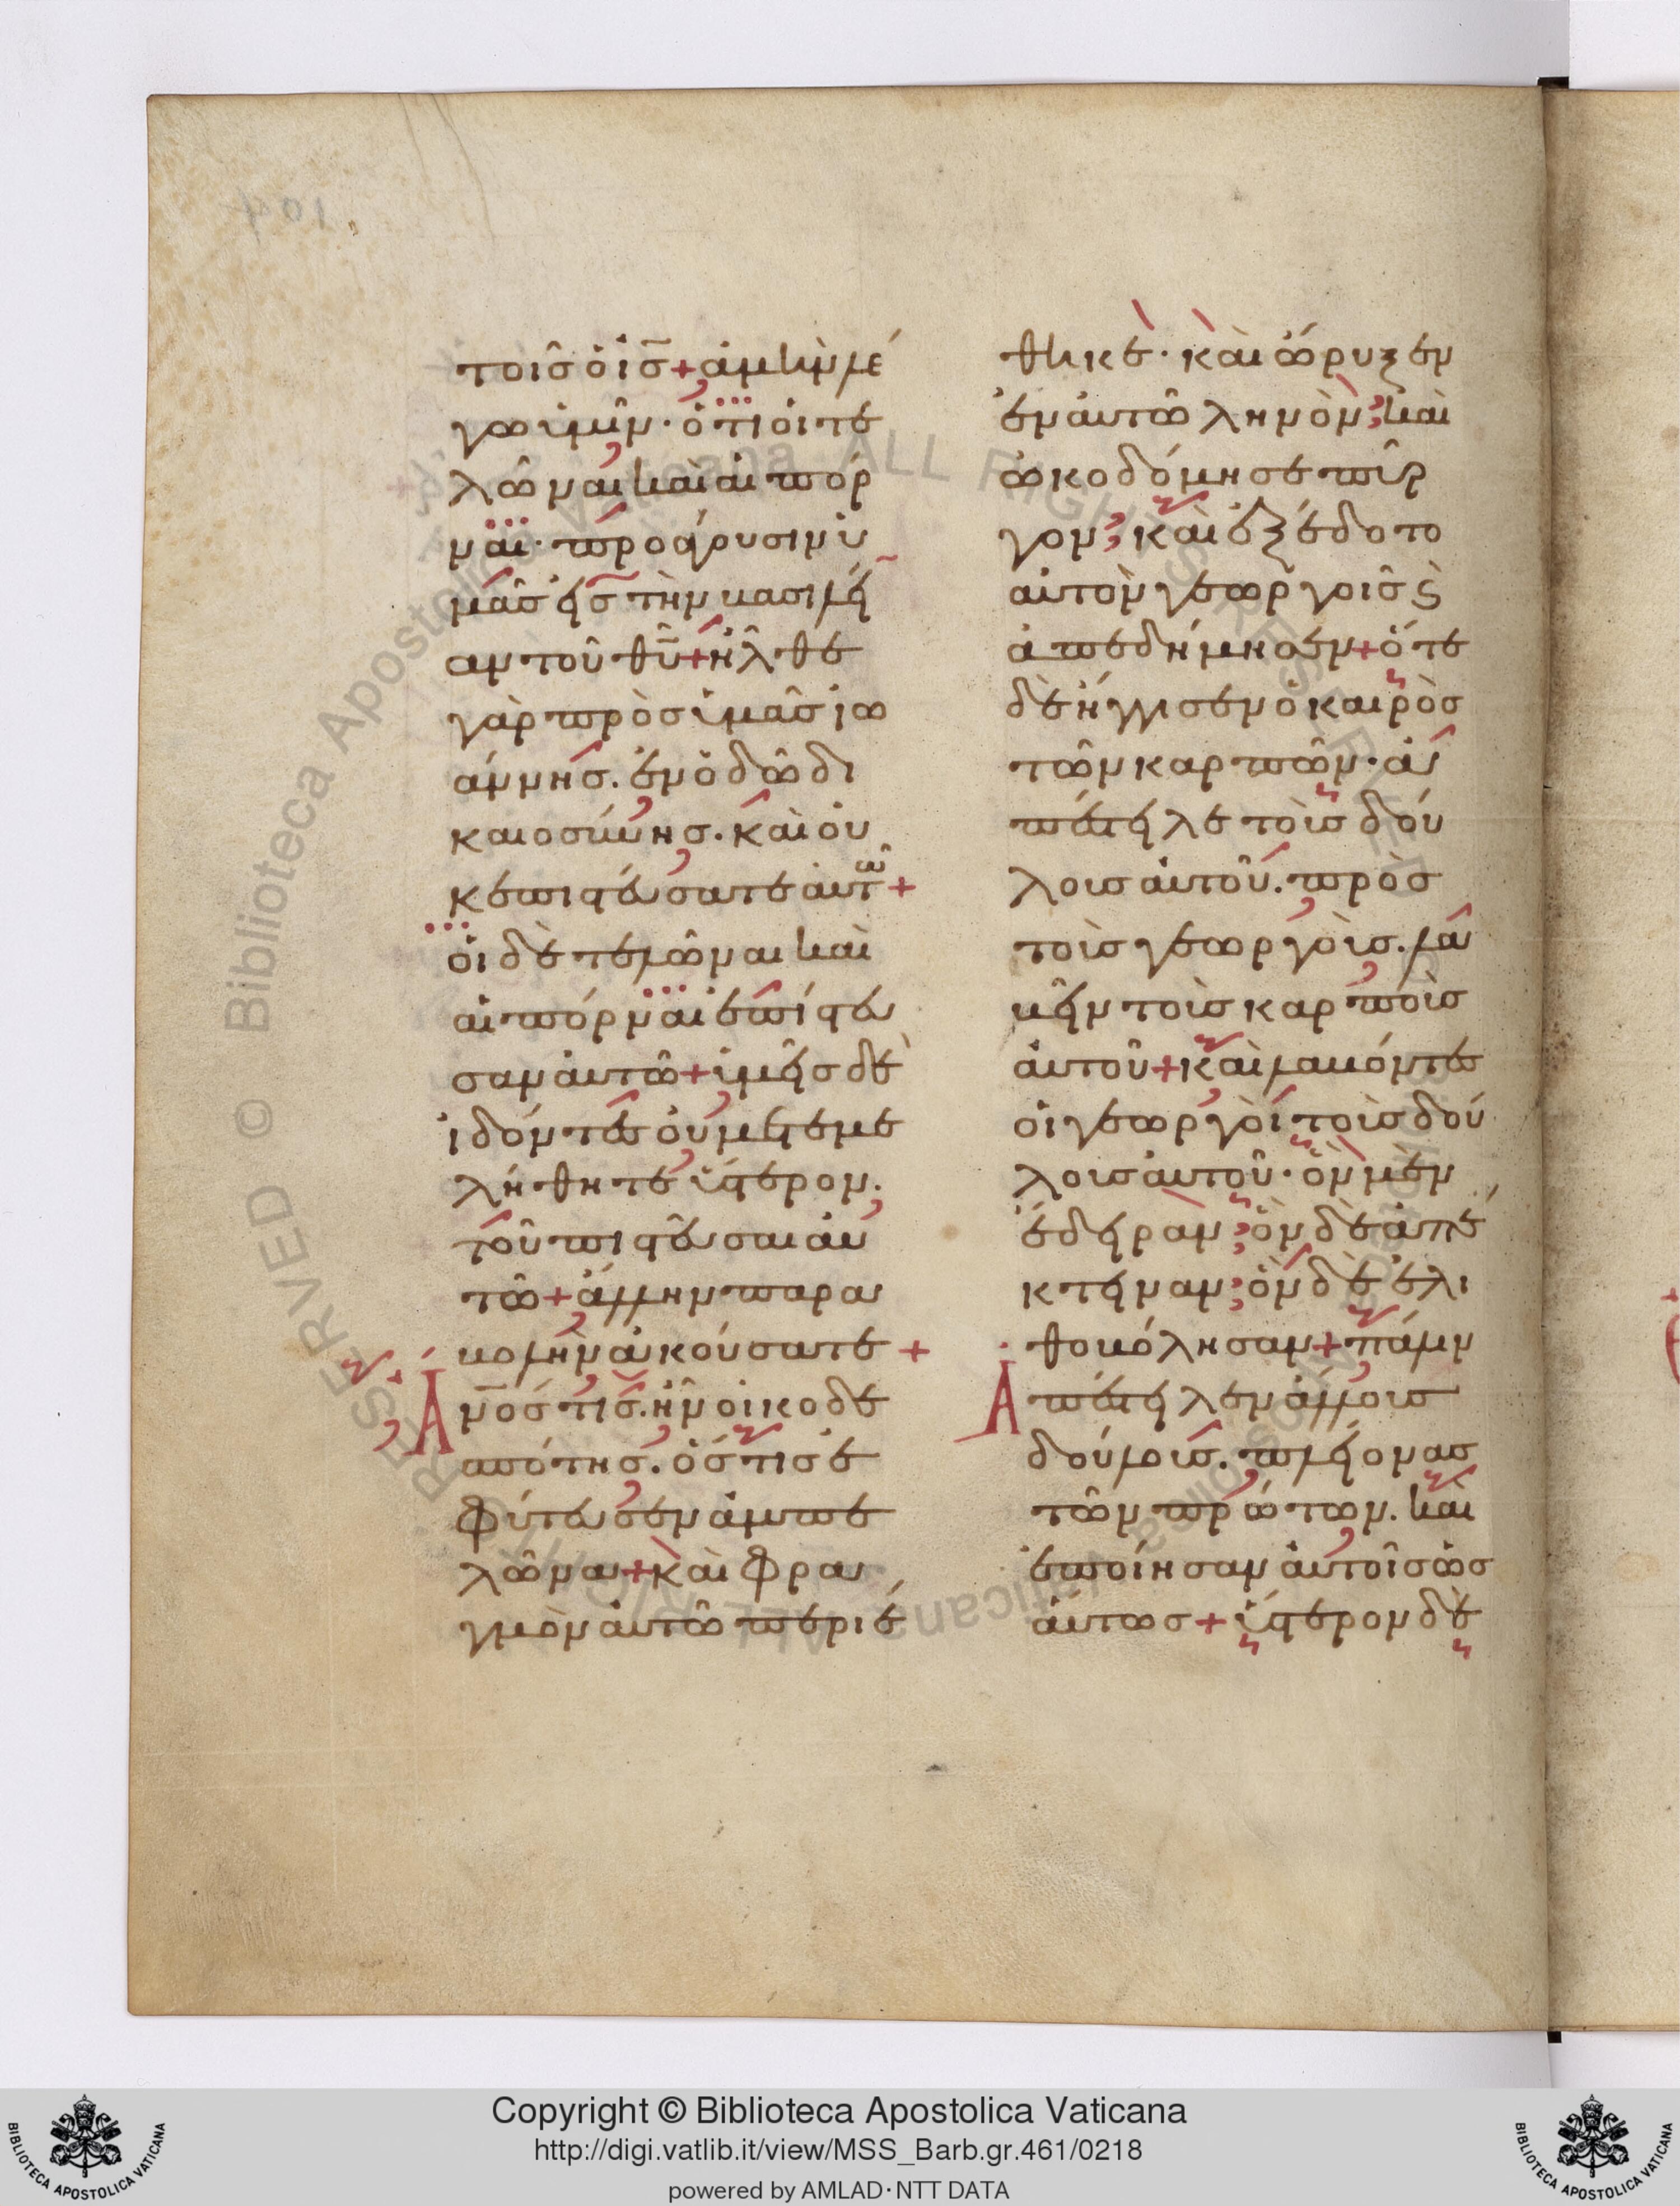 τοῖς ὁ ἰ̅ς̅ + ἀμὴν λέ
γω ὑμῖν · ὅτι οἱ τε
λῶναι καὶ αἱ πόρ
ναι · προάγουσιν ὑ
μᾶς εἰς τὴν βασιλεί
αν τοῦ θ̅υ̅ + ἦλθε
γὰρ πρὸς ὑμᾶς ἰω
άννης . ἐν ὁδῶ δι
καιοσύνης . καὶ οὐ
κ ἐπιστεύσατε αὐτῶ +
οἱ δὲ τελῶναι καὶ
αἱ πόρναι ἐπίστευ
σαν αὐτῶ + ὑμεῖς δὲ
ἰδόντες οὐ μετεμε
λήθητε ὕστερον .
τοῦ πιστεῦσαι αὐ
τῶ + ἄλλην παρα
βολὴν ἀκούσατε +
Α̅ν̅ο̅ς τὶς . ἦν οἰκοδε
σπότης . ὅστις ἐ
φύτευσεν ἀμπε
λῶνα + καὶ φρα
γμὸν αὐτῶ περιέ
θηκε · καὶ ὤρυξεν
ἐν αὐτῶ ληνὸν ; καὶ
ὠκοδόμησε πύρ
γον ; καὶ ἐξέδοτο
αὐτὸν γεωργοῖς ϛ
ἀπεδήμησεν + ὅτε
δὲ ἤγγισεν ὁ καιρὸς
τῶν καρπῶν · ἀ
πέστειλε τοὺς δού
λους αὐτοῦ . πρὸς
τοὺς γεωργοὺς . λα
βεῖν τοὺς καρποὺς
αὐτοῦ + καὶ λαβόντες
οἱ γεωργοὶ τοὺς δού
λους αὐτοῦ · ὃν μὲν
ἔδειραν ; ὃν δὲ ἀπέ
κτειναν ; ὃν δὲ ἐλι
θοβόλησαν + πάλιν
Ἀπέστειλεν ἄλλους
δούλους . πλείονας
τῶν πρώτων . καὶ
ἐποίησαν αὐτοῖς ὡσ
αύτως + ὕστερον δὲ
© Biblioteca Apostolica Vaticana ALL RIGHTS RESERVED
Copyright © Biblioteca Apostolica Vaticana
http://digi.vatlib.it/view/MSS_Barb.gr.461/0218
powered by AMLAD·NTT DATA
BIBLIOTECA APOSTOLICA VATICANA
BIBLIOTECA APOSTOLICA VATICANA